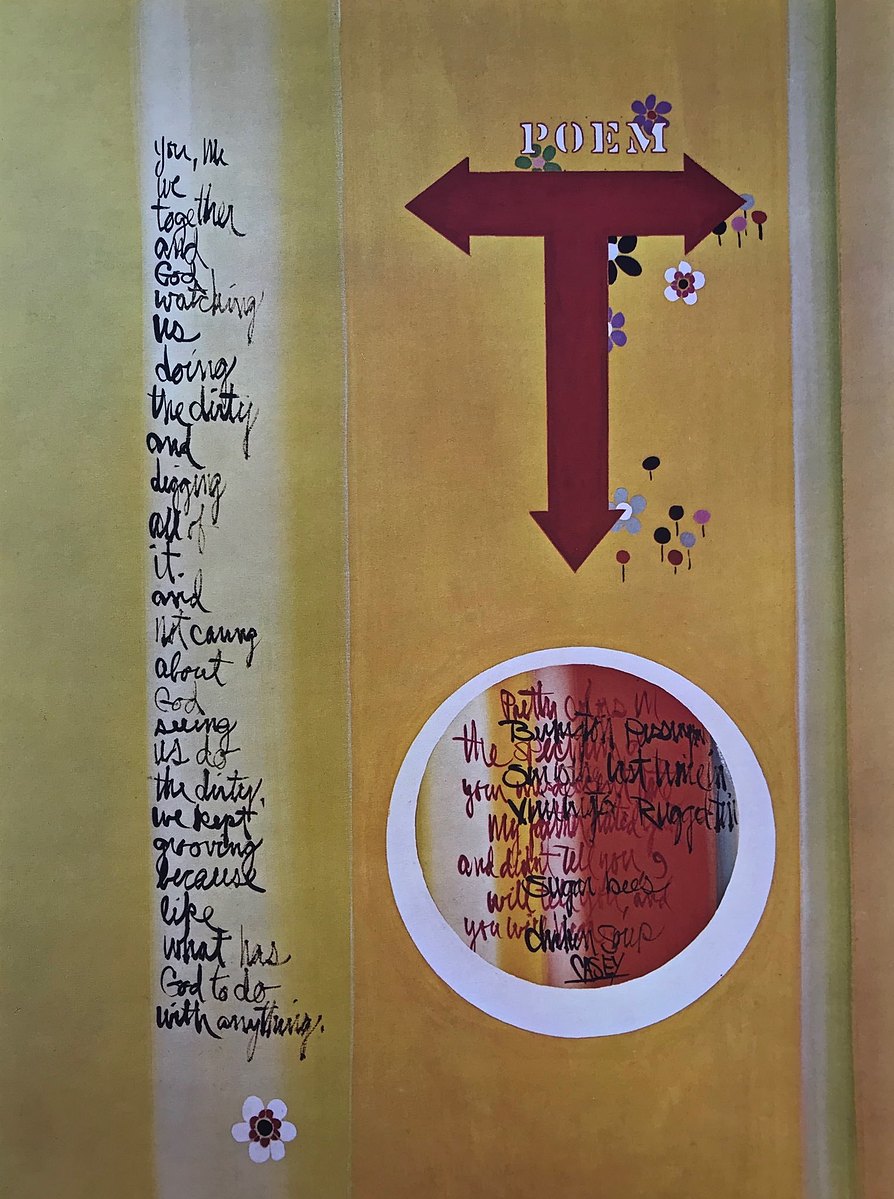 you, me
we
together
and
God
watching
us
doing
the dirty
and
digging
all of
it.
and
Not caring
about
God
seeing
us do
the dirty,
we kept
grooving
because
like
what has
God to do
with anything.
POEM
Pretty colors
the
your
My
and didn't Tell you
will
you
last time
Sugar bees
chicken soup
CASEY